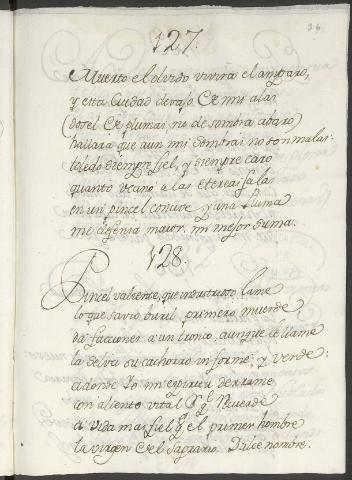 36
127.
Muerto el olvido vivira el amparo,
y esta Ciudad devajo De mis alas
(dosel De plumas, no de sombra avaro)
hallara que aun mis sombras no son malas:
toledo siempre fiel, y siempre caro
quanto vecino a las etereas salas
en un pincel convite y una pluma
me defenia maior, mi mejor suma.
128.
Pincel valiente, que industrioso lame
lo que savio buril primero muerde
da facciones a un tronco, aunque le llame
la selva su cachorro informe, y verde:
adonde Yo mi espiritu derrame
con aliente vital q.e Recuerde
a vida mas fiel q. el primer hombre
la virgen Del Sagrario. Dulce nombre.